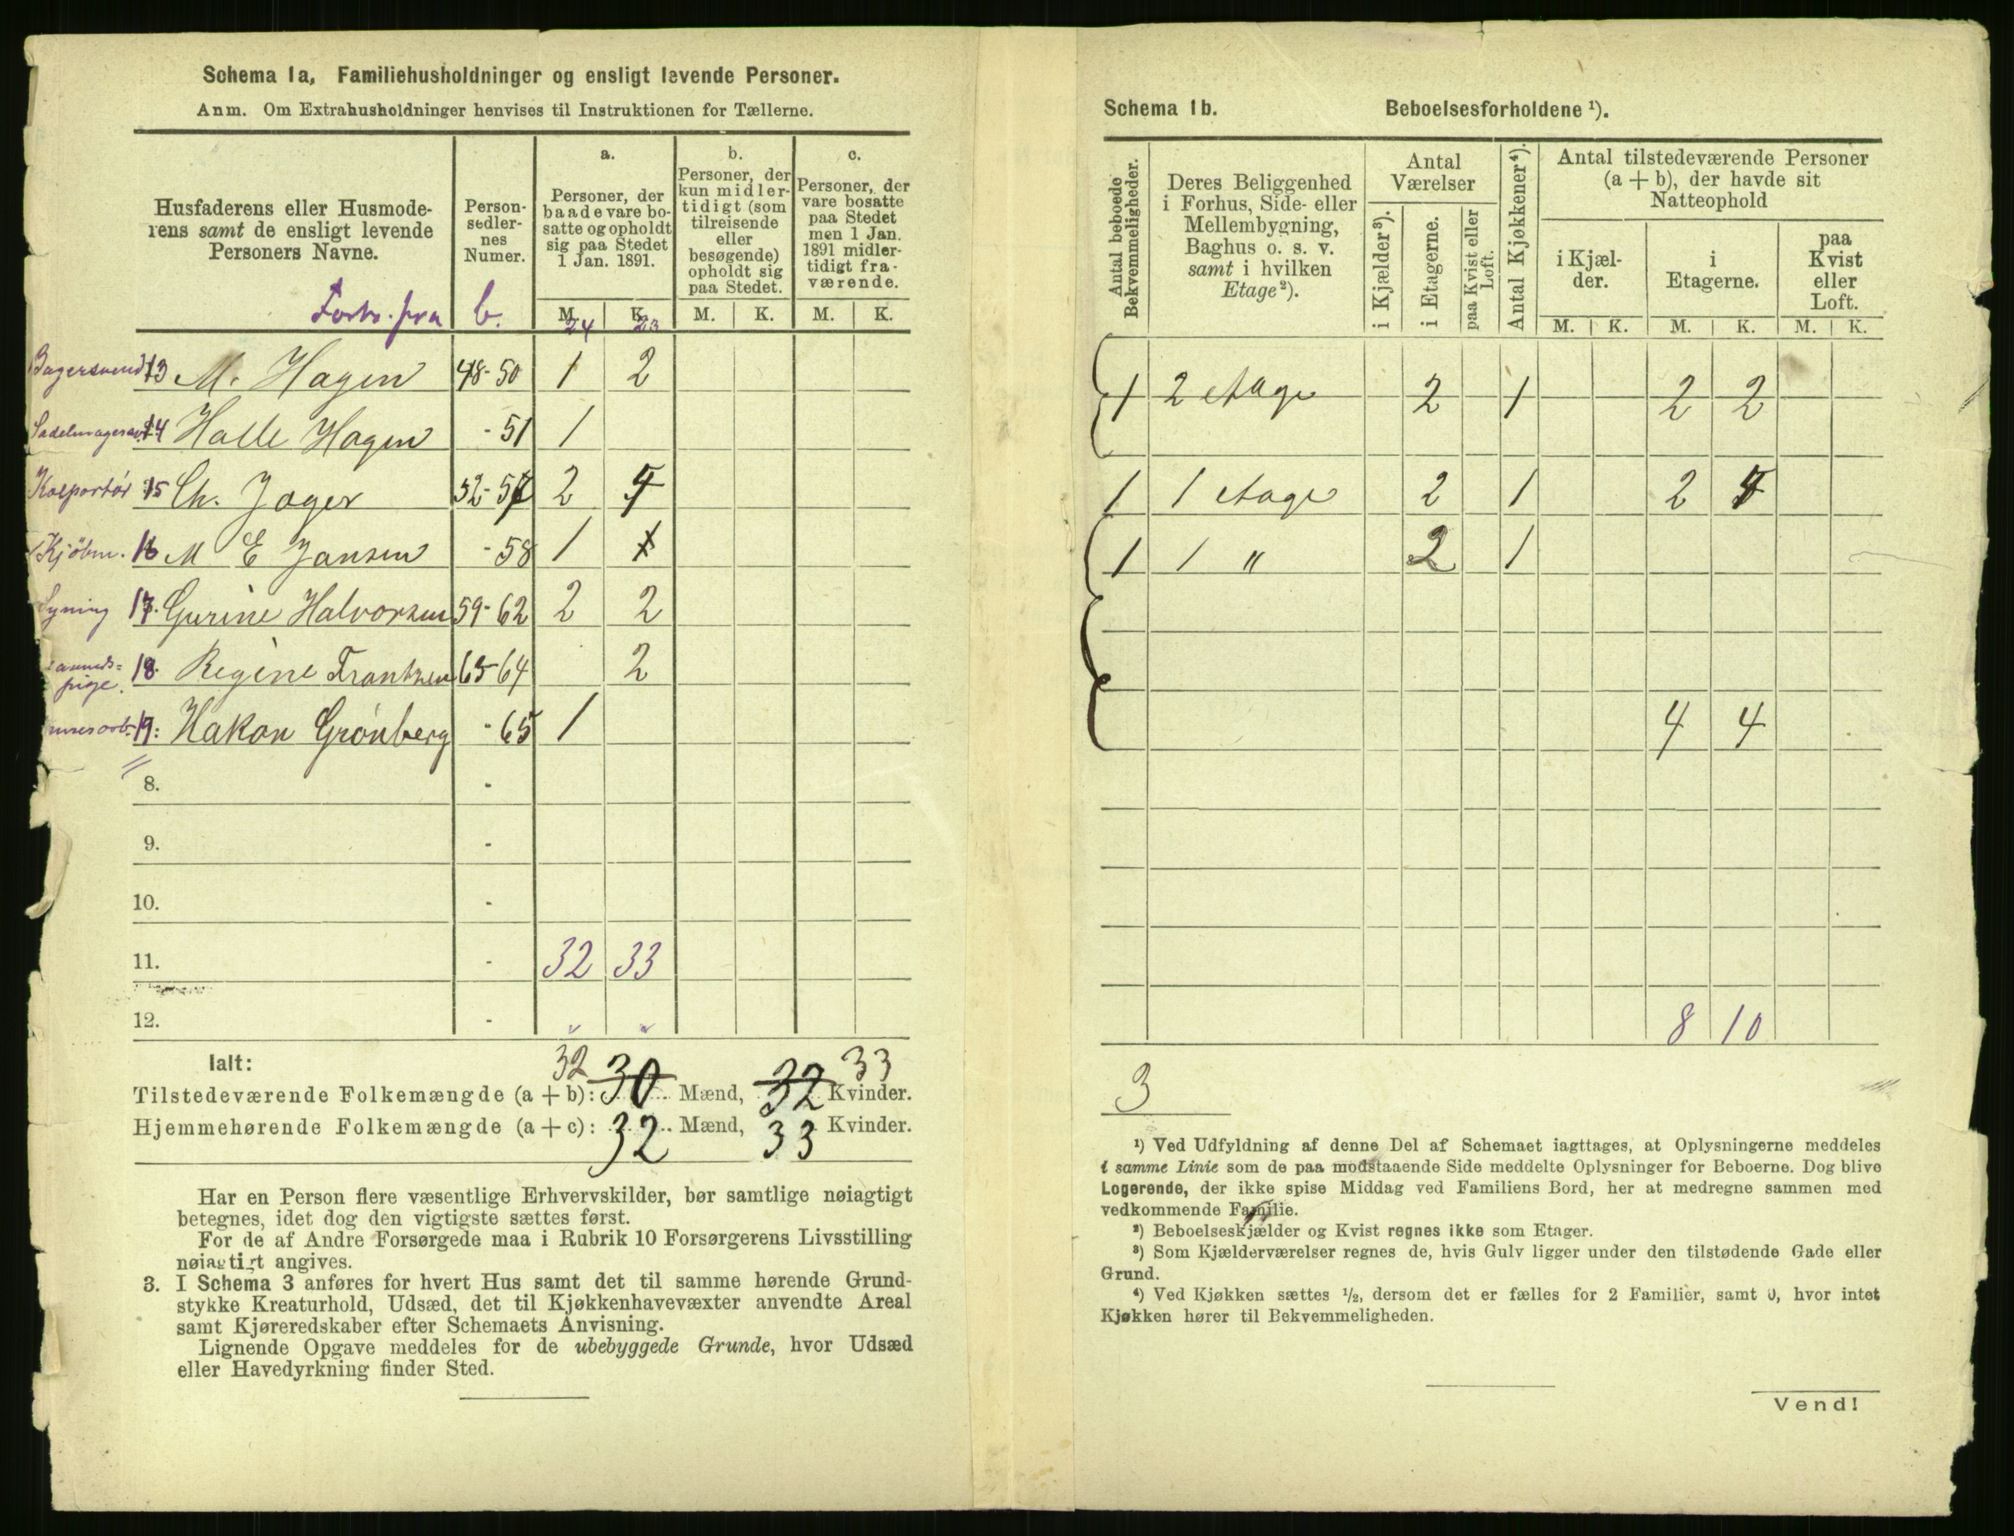 Schema 1a, Familiehusholdninger og ensligt levende Personer.
Anm. Om Extrahusholdninger henvises til Instruktionen for Tællerne.
Husfaderens eller Husmoderens samt de ensligt levende Personers Navne.
Personsedlernes Numer.
a. Personer, der baade vare bosatte og opholdt sig paa Stedet 1 Jan. 1891.
b. Personer, der kun midlertidigt (som tilreisende eller besøgende) opholdt sig paa Stedet.
c. Personer, der vare bosatte paa Stedet men 1 Jan. 1891 midlertidigt fraværende.
M. K. M. K. M. K.
fra b. 24 23
Bagersvend 13 M. Hagen 48-50 1 2
14 Halle Hagen - 51 1
Kolportør 15 Ch. Jager 52-57 2
Kjøbm. 16 M E Jansen - 58 1
Syning 17. Gurine Halvorsen 59-62 2 2
pige. 18. Regine Frantzen 63-64 2
19: Hakon Grønberg - 65 1
8. -
9. -
10. -
11. - 32 33
12. -
Ialt:
32 33
Tilstedeværende Folkemængde (a + b): 30 Mænd, 32 Kvinder.
Hjemmehørende Folkemængde (a + c): 32 Mænd, 33 Kvinder.
Har en Person flere væsentlige Erhvervskilder, bør samtlige nøiagtigt
betegnes, idet dog den vigtigste sættes først.
For de af Andre Forsørgede maa i Rubrik 10 Forsørgerens Livsstilling
nøiagtigt angives.
3. I Schema 3 anføres for hvert Hus samt det til samme hørende Grund-
stykke Kreaturhold, Udsæd, det til Kjøkkenhavevæxter anvendte Areal
samt Kjøreredskaber efter Schemaets Anvisning.
Lignende Opgave meddeles for de ubebyggede Grunde, hvor Udsæd
eller Havedyrkning finder Sted.
Schema 1b. Beboelsesforholdene ¹).
Antal beboede Bekvemmeligheder.
Deres Beliggenhed i Forhus, Side- eller Mellembygning, Baghus o. s. v. samt i hvilken Etage ²).
Antal Værelser
i Kjælder ³).
i Etagerne.
paa Kvist eller Loft.
Antal Kjøkkener ⁴).
Antal tilstedeværende Personer (a + b), der havde sit Natteophold
i Kjælder.
i Etagerne.
paa Kvist eller Loft.
M. K. M. K. M. K.
1 2 etage 2 1 2 2
1 1 etage 2 1 2 4
1 1 " 2 1
4 4
8 10
3
¹) Ved Udfyldning af denne Del af Schemaet iagttages, at Oplysningerne meddeles
i samme Linie som de paa modstaaende Side meddelte Oplysninger for Beboerne. Dog blive
Logerende, der ikke spise Middag ved Familiens Bord, her at medregne sammen med
vedkommende Familie.
²) Beboelseskjælder og Kvist regnes ikke som Etager.
³) Som Kjælderværelser regnes de, hvis Gulv ligger under den tilstødende Gade eller
Grund.
⁴) Ved Kjøkken sættes ½, dersom det er fælles for 2 Familier, samt 0, hvor intet
Kjøkken hører til Bekvemmeligheden.
Vend!